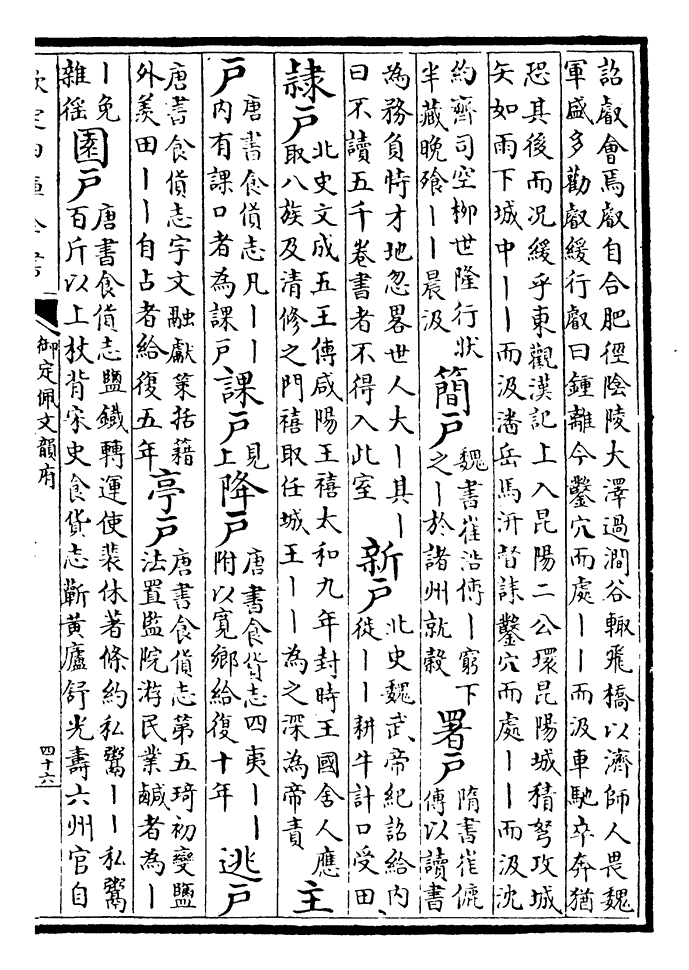 詔叡會焉叡自合肥徑陰陵大澤過澗谷輙飛橋以濟師人畏魏
軍盛多勸叡緩行叡曰鍾離今鑿穴而處丨丨而汲車馳卒奔猶
恐其後而況緩乎東觀漢記上入昆陽二公環昆陽城積弩攻城
矢如雨下城中丨丨而汲潘岳馬汧督誄鑿穴而處丨丨而汲沈
約齊司空柳世隆行狀
半藏晚飱丨丨晨汲
簡戶
魏書崔浩傳丨窮下
之丨於諸州就穀
署戶
隋書崔儦
傳以讀書
為務負恃才地忽畧世人大丨其丨
曰不讀五千卷書者不得入此室
新戶
北史魏武帝紀詔給内
徙丨丨耕牛計口受田
隸戶
北史文成五王傳咸陽王禧太和九年封時王國舍人應
取八族及清修之門禧取任城王丨丨為之深為帝責
主
戶
唐書食貨志凡丨丨
内有課口者為課戶
課戶
見
上
降戶
唐書食貨志四夷丨丨
附以寬鄉給復十年
逃戶
唐書食貨志宇文融獻策括籍
外羨田丨丨自占者給復五年
亭戶
唐書食貨志第五琦初變鹽
法置監院游民業鹹者為丨
丨免
雜徭
園戶
唐書食貨志鹽鐵轉運使裴休著條約私鬻丨丨私鬻
百斤以上杖背宋史食貨志蘄黃廬舒光壽六州官自
欽定四庫全書
御定佩文韻府
四十六